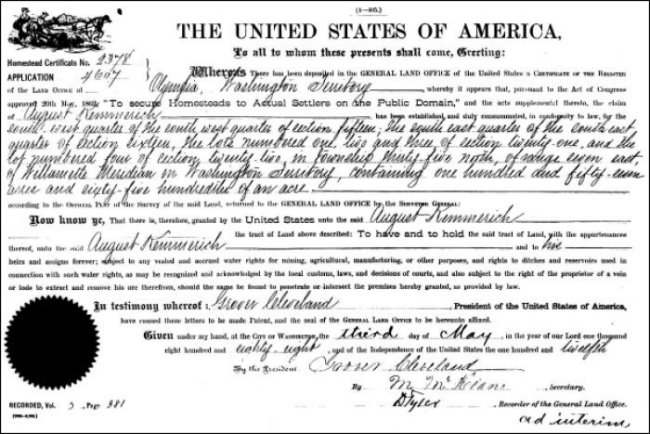 (4—405.)
THE UNITED STATES OF AMERICA,
To all to whom these presents shall come, Greeting:
Homestead Certificate No. 2378
APPLICATION 4607
Whereas There has been deposited in the GENERAL LAND OFFICE of the United States a CERTIFICATE OF THE REGISTER
OF THE LAND OFFICE AT Olympia, Washington Territory, whereby it appears that, pursuant to the Act of Congress
approved 20th May, 1862, "To secure Homesteads to Actual Settlers on the Public Domain," and the acts supplemental thereto, the claim
of August Kemmerich has been established, and duly consummated, in conformity to law, for the
south west quarter of the south west quarter of section fifteen, the south east quarter of the south east
quarter of section sixteen, the lots numbered one, two and three of section twenty-one, and the
lot numbered four of section twenty two, in township thirty-five north, of range seven east,
of Willamette Meridian in Washington Territory, containing one hundred and fifty-seven
acres and eighty-five hundredths of an acre.
according to the OFFICIAL PLAT of the Survey of the said Land, returned to the GENERAL LAND OFFICE by the SURVEYOR GENERAL:
Now know ye, That there is, therefore, granted by the United States unto the said August Kemmerich
the tract of Land above described: To have and to hold the said tract of Land, with the appurtenances
thereof, unto the said August Kemmerich and to his
heirs and assigns forever; subject to any vested and accrued water rights for mining, agricultural, manufacturing, or other purposes, and rights to ditches and reservoirs used in
connection with such water rights, as may be recognized and acknowledged by the local customs, laws, and decisions of courts, and also subject to the right of the proprietor of a vein
or lode to extract and remove his ore therefrom, should the same be found to penetrate or intersect the premises hereby granted, as provided by law.
In testimony whereof I, Grover Cleveland, President of the United States of America,
have caused these letters to be made Patent, and the seal of the GENERAL LAND OFFICE to be hereunto affixed.
Given under my hand, at the CITY OF WASHINGTON, the third day of May, in the year of our Lord one thousand
eight hundred and eighty-eight, and of the Independence of the United States the one hundred and twelfth
By the President: Grover Cleveland
By M. McKeane, Secretary.
D Tyler, Recorder of the General Land Office.
ad interim
RECORDED, Vol. 3 Page 381